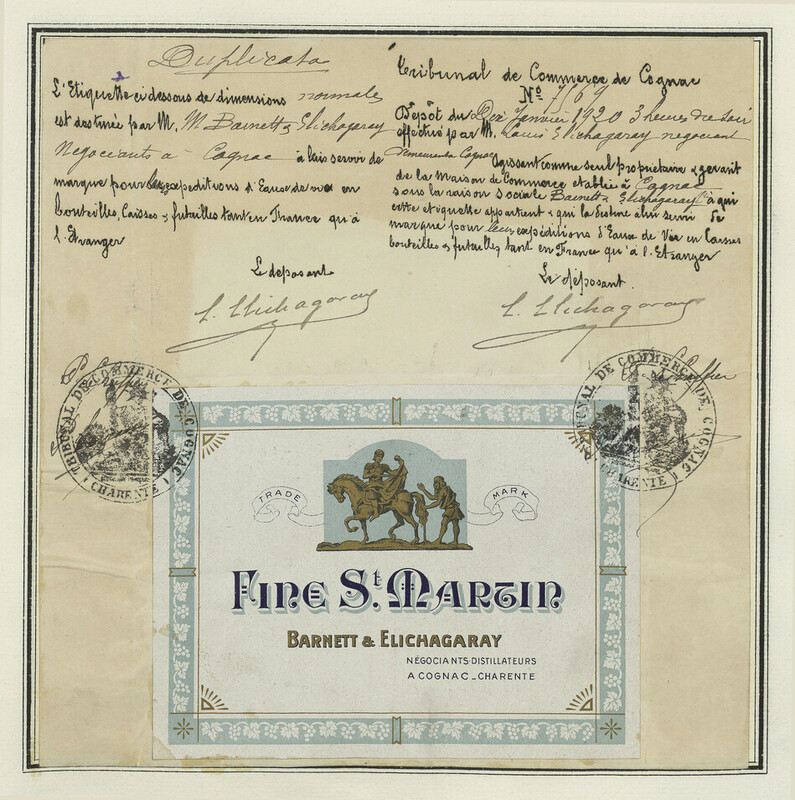 Duplicata
L'Etiquette ci dessous de dimensions normales
est destinée par M. M Barnett & Elichagaray
Négociants à Cognac à lais servir de
marque pour leurs expéditions d'Eaux de vie en
bouteilles, Caisses & futailles tant en France qu'à
l'Etranger
Le deposant
L. Elichagaray
Tribunal de Commerce de Cognac
No 7169
Dépôt du Dix Janvier 1920 3 heures du soir
effectué par M. Louis Elichagaray négociant
demeurant à Cognac Agissant comme seul propriétaire & gérant
de la Maison de Commerce etablie à Cognac
sous la raison sociale Barnett & Elichagaray Cie à qui
cette etiquette appartient & qui la destine à lui servir de
marque pour leurs expéditions d'Eaux de Vie en Caisses
bouteilles & futailles, tant en France qu'à l'Etranger
Le déposant.
L. Elichagaray
TRIBUNAL DE COMMERCE DE COGNAC
(CHARENTE)
TRIBUNAL DE COMMERCE DE COGNAC
(CHARENTE)
TRADE MARK
FINE St. MARTIN
BARNETT & ELICHAGARAY
NÉGOCIANTS-DISTILLATEURS
A COGNAC_CHARENTE